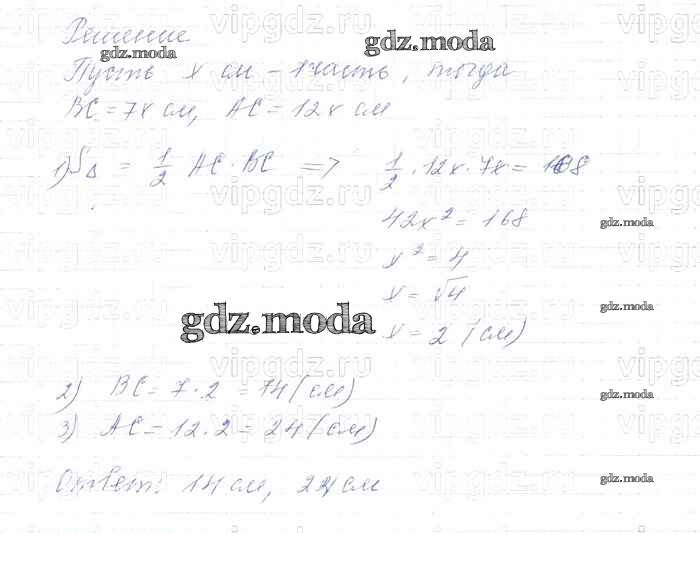 Решение
gdz.moda
gdz.moda
Пусть x см - 1 часть, тогда
BC = 7x см, AC = 12x см
1) S△ = 1/2 AC · BC => 1/2 · 12x · 7x = 168
42x² = 168
gdz.moda
x² = 4
x = √4
gdz.moda
gdz.moda
x = 2 (см)
2) BC = 7 · 2 = 14 (см)
gdz.moda
3) AC = 12 · 2 = 24 (см)
Ответ: 14 см, 24 см
gdz.moda
vipgdz.ru